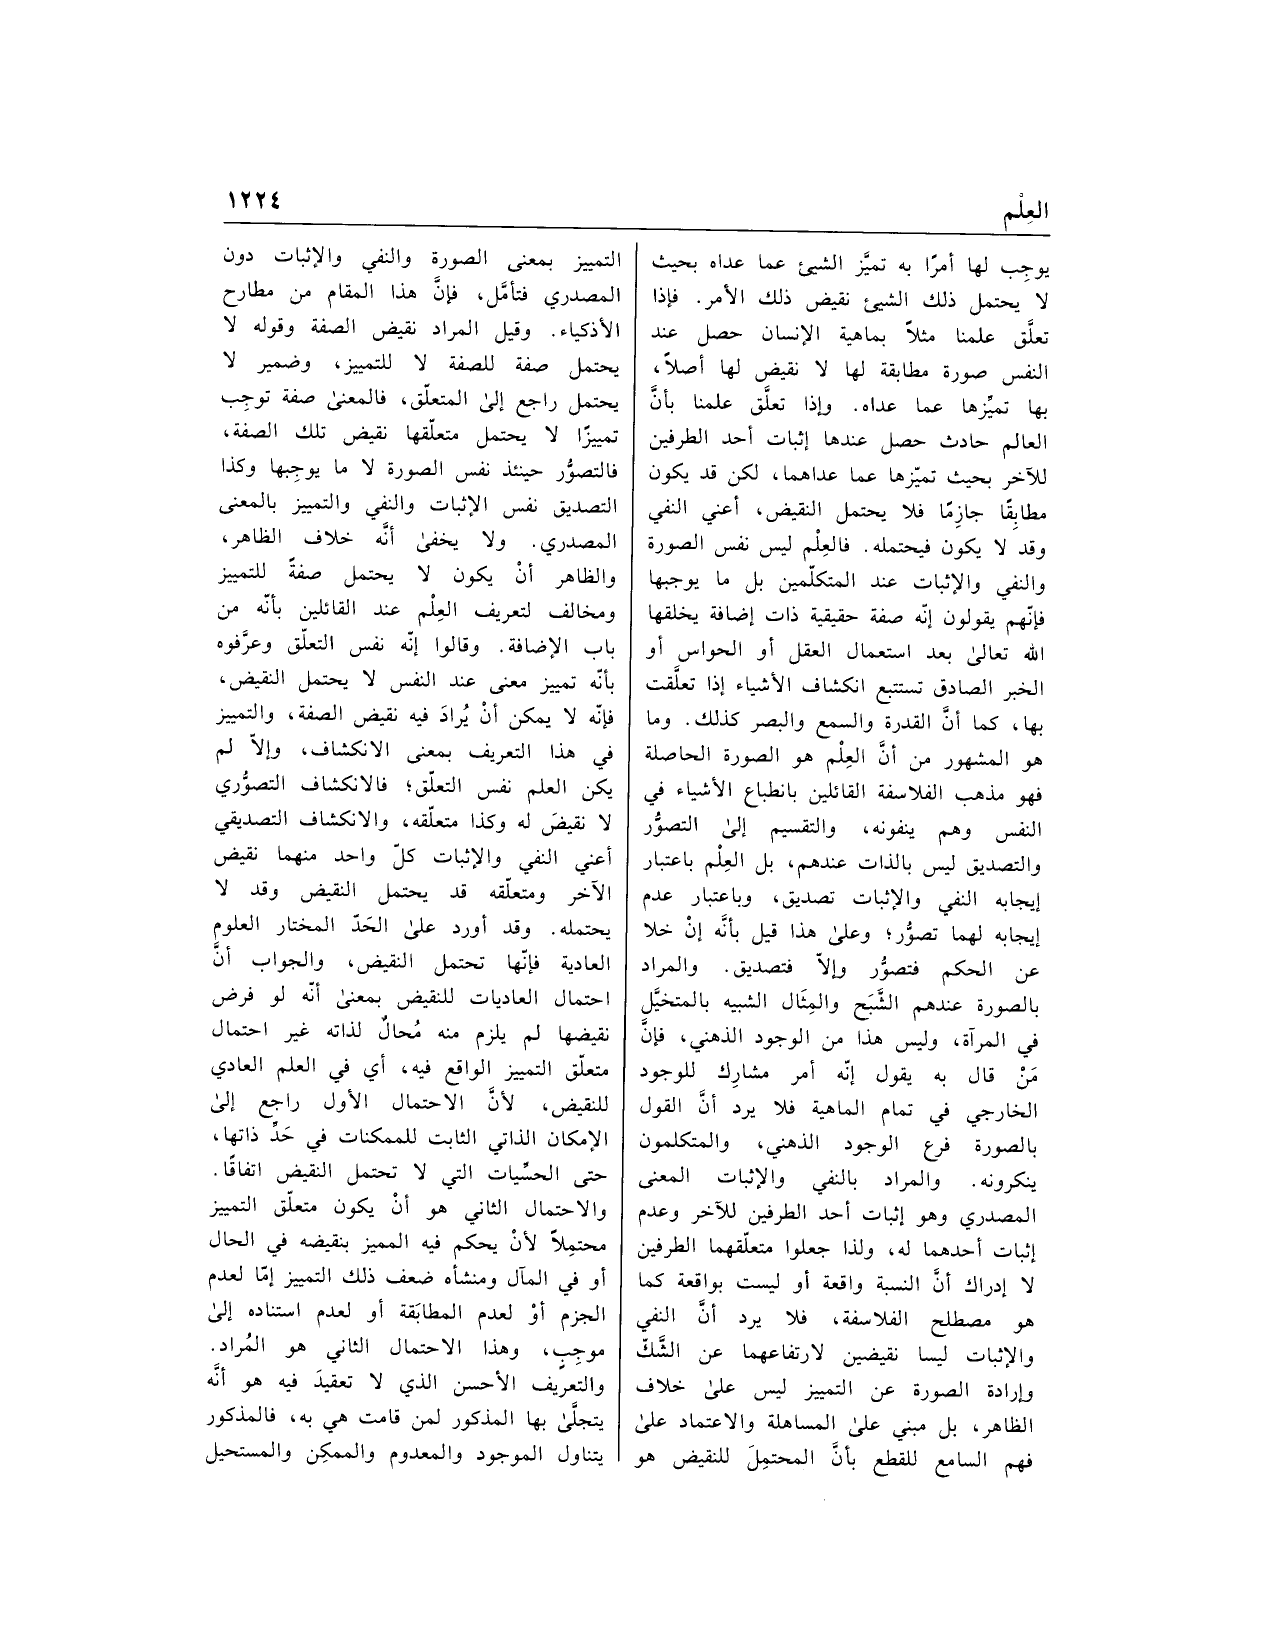 العِلْم
١٢٢٤
يوجِب لها أمرًا به تميَّز الشيئ عما عداه بحيث
لا يحتمل ذلك الشيئ نقيض ذلك الأمر. فإذا
تعلَّق علمنا مثلاً بماهية الإنسان حصل عند
النفس صورة مطابقة لها لا نقيض لها أصلاً،
بها تميِّزها عما عداه. وإذا تعلَّق علمنا بأنَّ
العالم حادث حصل عندها إثبات أحد الطرفين
للآخر بحيث تميّزها عما عداهما، لكن قد يكون
مطابِقًا جازِمًا فلا يحتمل النقيض، أعني النفي
وقد لا يكون فيحتمله. فالعِلْم ليس نفس الصورة
والنفي والإثبات عند المتكلّمين بل ما يوجبها
فإنّهم يقولون إنّه صفة حقيقية ذات إضافة يخلقها
الله تعالىٰ بعد استعمال العقل أو الحواس أو
الخبر الصادق تستتبع انكشاف الأشياء إذا تعلَّقت
بها، كما أنَّ القدرة والسمع والبصر كذلك. وما
هو المشهور من أنَّ العِلْم هو الصورة الحاصلة
فهو مذهب الفلاسفة القائلين بانطباع الأشياء في
النفس وهم ينفونه، والتقسيم إلى التصوُّر
والتصديق ليس بالذات عندهم، بل العِلْم باعتبار
إيجابه النفي والإثبات تصديق، وباعتبار عدم
إيجابه لهما تصوُّر؛ وعلىٰ هذا قيل بأنَّه إنْ خلا
عن الحكم فتصوُّر وإلاّ فتصديق. والمراد
بالصورة عندهم الشَّبَح والمِثَال الشبيه بالمتخيَّل
في المرآة، وليس هذا من الوجود الذهني، فإنَّ
مَنْ قال به يقول إنّه أمر مشارِك للوجود
الخارجي في تمام الماهية فلا يرد أنَّ القول
بالصورة فرع الوجود الذهني، والمتكلمون
ينكرونه. والمراد بالنفي والإثبات المعنى
المصدري وهو إثبات أحد الطرفين للآخر وعدم
إثبات أحدهما له، ولذا جعلوا متعلّقهما الطرفين
لا إدراك أنَّ النسبة واقعة أو ليست بواقعة كما
هو مصطلح الفلاسفة، فلا يرد أنَّ النفي
والإثبات ليسا نقيضين لارتفاعهما عن الشَّكّ
وإرادة الصورة عن التمييز ليس علىٰ خلاف
الظاهر، بل مبني علىٰ المساهلة والاعتماد علىٰ
فهم السامع للقطع بأنَّ المحتمِلَ للنقيض هو
التمييز بمعنى الصورة والنفي والإثبات دون
المصدري فتأمَّل، فإنَّ هذا المقام من مطارح
الأذكياء. وقيل المراد نقيض الصفة وقوله لا
يحتمل صفة للصفة لا للتمييز، وضمير لا
يحتمل راجع إلىٰ المتعلّق، فالمعنىٰ صفة توجِب
تمييزًا لا يحتمل متعلّقها نقيض تلك الصفة،
فالتصوُّر حينئذ نفس الصورة لا ما يوجِبها وكذا
التصديق نفس الإثبات والنفي والتمييز بالمعنى
المصدري. ولا يخفىٰ أنَّه خلاف الظاهر،
والظاهر أنْ يكون لا يحتمل صفةً للتمييز
ومخالف لتعريف العِلْم عند القائلين بأنّه من
باب الإضافة. وقالوا إنّه نفس التعلّق وعرَّفوه
بأنّه تمييز معنى عند النفس لا يحتمل النقيض،
فإنّه لا يمكن أنْ يُرادَ فيه نقيض الصفة، والتمييز
في هذا التعريف بمعنى الانكشاف، وإلاّ لم
يكن العلم نفس التعلّق؛ فالانكشاف التصوُّري
لا نقيضَ له وكذا متعلّقه، والانكشاف التصديقي
أعني النفي والإثبات كلّ واحد منهما نقيض
الآخر ومتعلّقه قد يحتمل النقيض وقد لا
يحتمله. وقد أورد علىٰ الحَدّ المختار العلوم
العادية فإنّها تحتمل النقيض، والجواب أنَّ
احتمال العاديات للنقيض بمعنىٰ أنّه لو فرض
نقيضها لم يلزم منه مُحالٌ لذاته غير احتمال
متعلّق التمييز الواقع فيه، أي في العلم العادي
للنقيض، لأنَّ الاحتمال الأول راجع إلىٰ
الإمكان الذاتي الثابت للممكنات في حَدِّ ذاتها،
حتى الحسِّيات التي لا تحتمل النقيض اتفاقًا.
والاحتمال الثاني هو أنْ يكون متعلّق التمييز
محتمِلاً لأنْ يحكم فيه المميز بنقيضه في الحال
أو في المآل ومنشأه ضعف ذلك التمييز إمّا لعدم
الجزم أوْ لعدم المطابَقة أو لعدم استناده إلىٰ
موجِبٍ، وهذا الاحتمال الثاني هو المُراد.
والتعريف الأحسن الذي لا تعقيدَ فيه هو أنَّه
يتجلَّىٰ بها المذكور لمن قامت هي به، فالمذكور
يتناول الموجود والمعدوم والممكِن والمستحيل